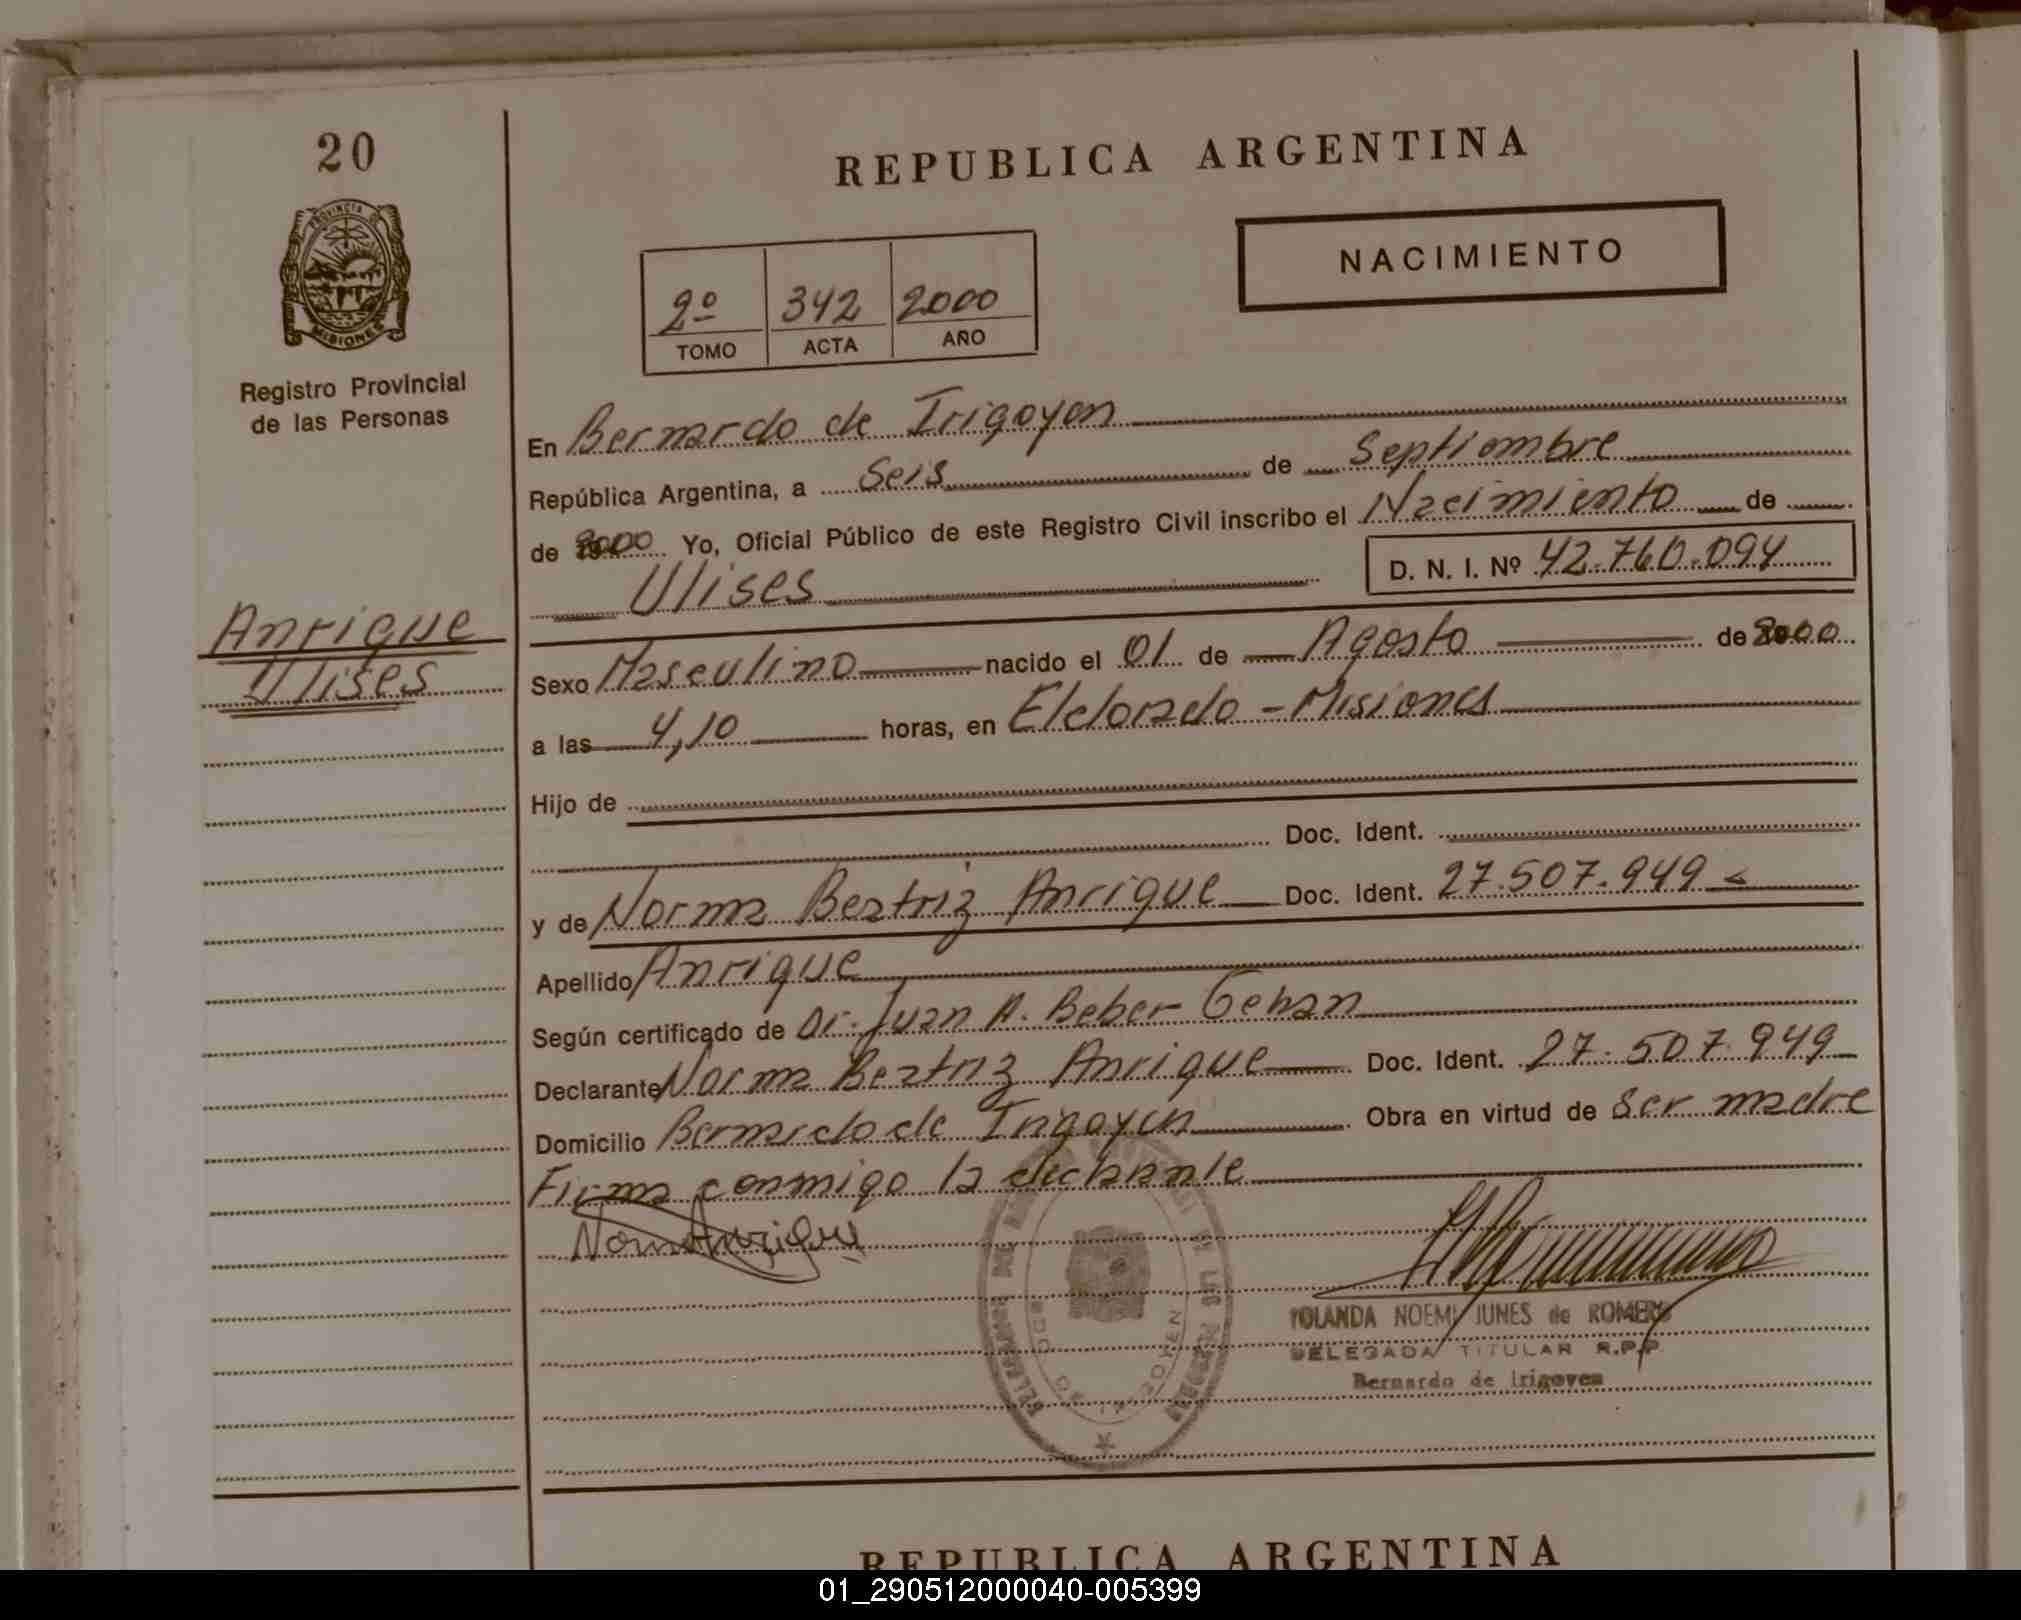 20
PROVINCIA DE
MISIONES
Registro Provincial
de las Personas
Anrique
Ulises
REPUBLICA ARGENTINA
NACIMIENTO
2º 342 2000
TOMO ACTA AÑO
En Bernardo de Irigoyen
República Argentina, a Seis de Septiembre
de 2000 Yo, Oficial Público de este Registro Civil inscribo el Nacimiento de
Ulises D. N. I. Nº 42.760.094
Sexo Masculino nacido el 01 de Agosto de 2000
a las 4,10 horas, en Eldorado - Misiones
Hijo de
Doc. Ident.
y de Norma Beatriz Anrique Doc. Ident. 27.507.949
Apellido Anrique
Según certificado de Dr. Juan A. Beber
Declarante Norma Beatriz Anrique Doc. Ident. 27.507.949
Domicilio Bernardo de Irigoyen Obra en virtud de Ser madre
Firma conmigo la
Norma Anrique
YOLANDA NOEMI JUNES de ROMERO
DELEGADA TITULAR R.P.P.
Bernardo de Irigoyen
REPUBLICA ARGENTINA
01_290512000040-005399